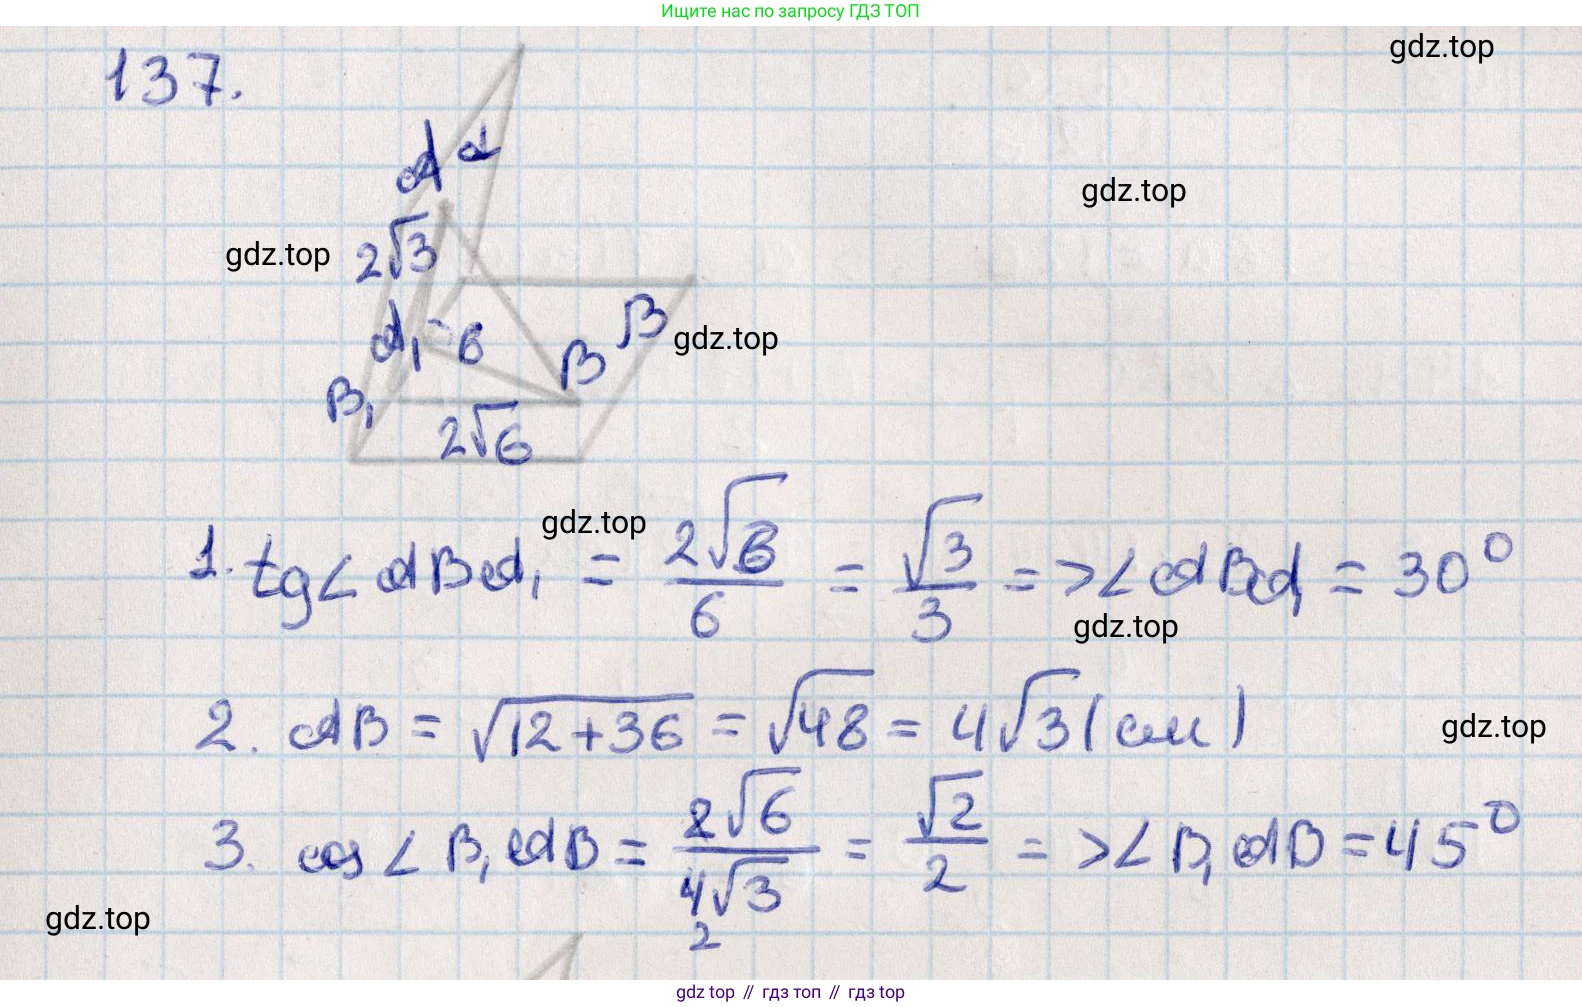 Ищите нас по запросу ГДЗ ТОП
137.
gdz.top
A α
gdz.top
2√3
gdz.top
A₁ 6 B β
gdz.top
B₁
2√6
gdz.top
1. tg∠ABA₁ = 2√3/6 = √3/3 => ∠ABA₁ = 30°
gdz.top
2. AB = √12+36 = √48 = 4√3 (см)
gdz.top
3. cos∠B₁AB = 2√6/4√3 = √2/2 => ∠B₁AB = 45°
2
gdz.top
gdz top // гдз топ // гдз top